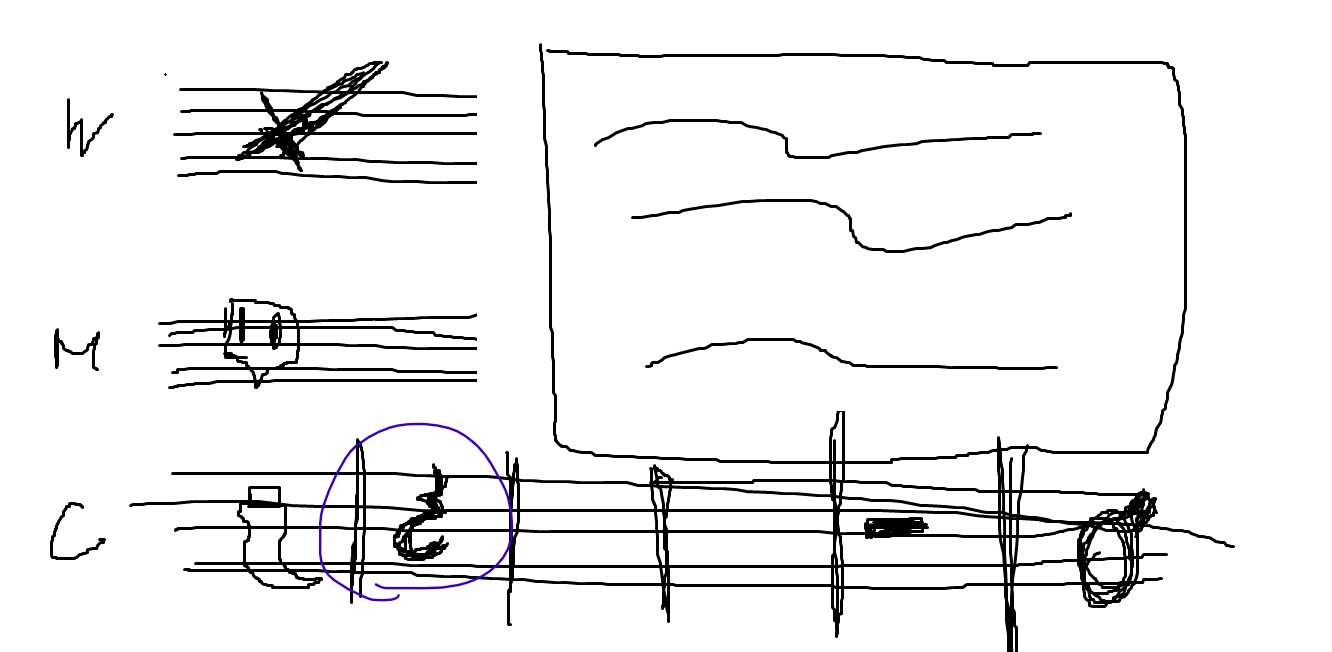 W
M
C